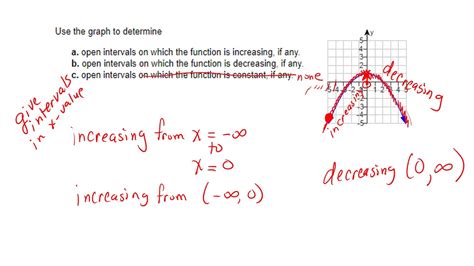 Use the graph to determine
a. open intervals on which the function is increasing, if any.
b. open intervals on which the function is decreasing, if any.
c. open intervals on which the function is constant, if any. none
give
intervals
in x-value
increasing from x = -∞
to
x = 0
increasing from (-∞, 0)
y
increasing
decreasing
decreasing (0, ∞)